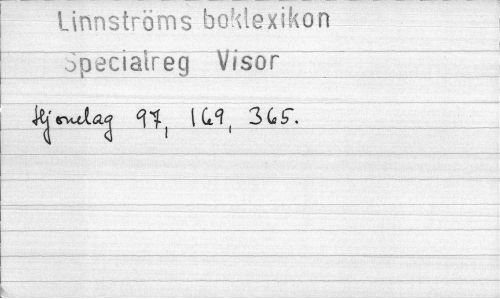 Linnströms boklexikon
Specialreg Visor
Hjonelag 97, 169, 365.